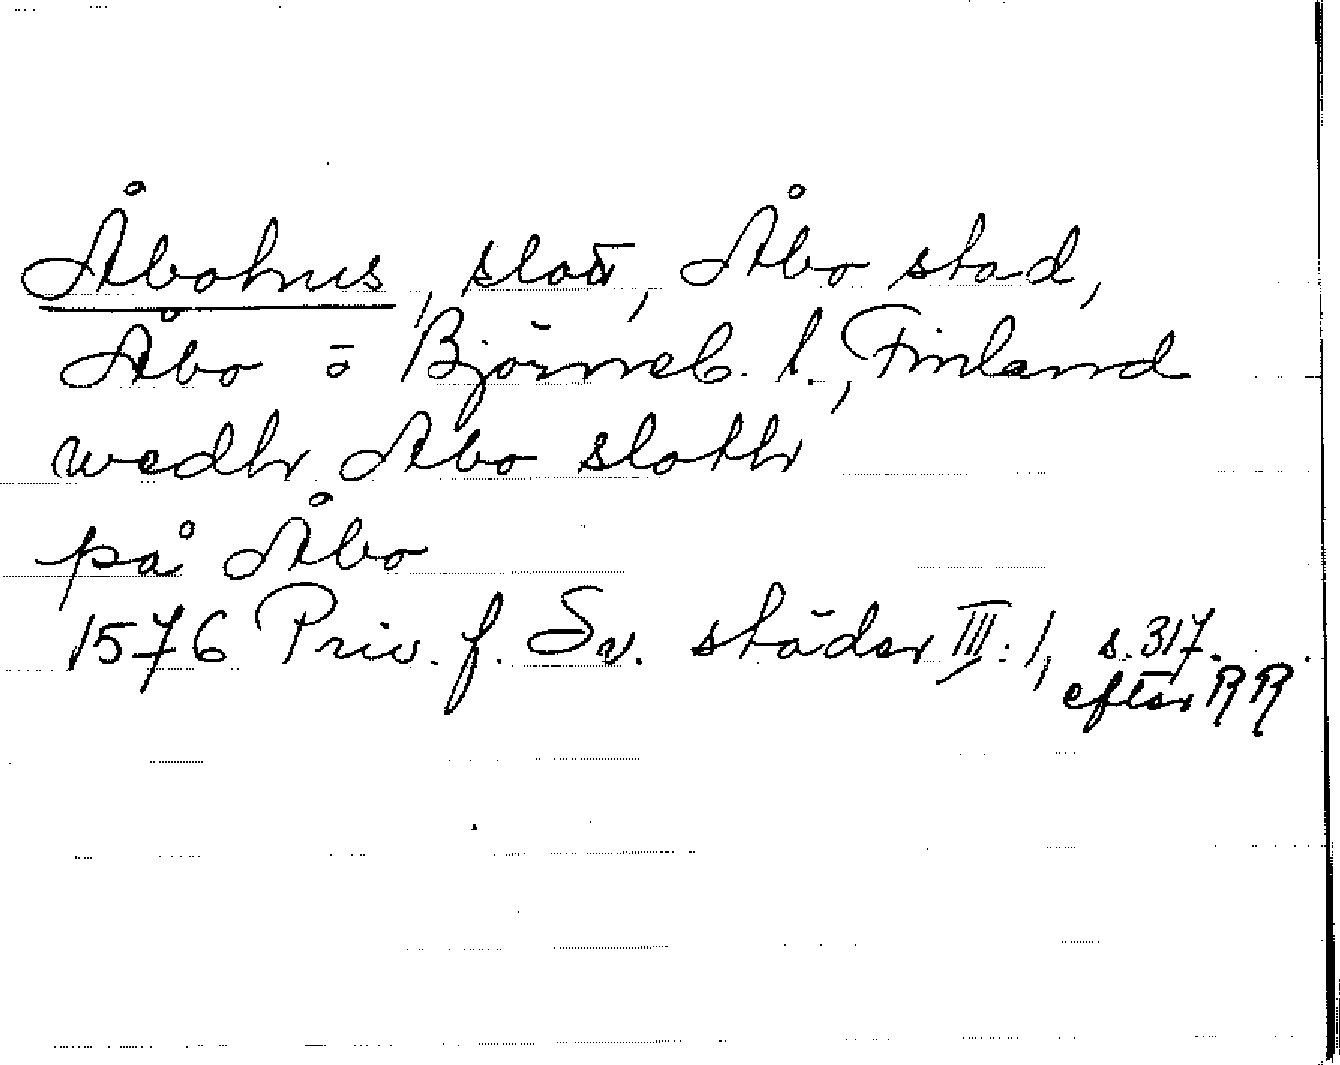 Åbohus, slott, Åbo stad,
Åbo o Björneb. l., Finland
wedhr Abo slothr
på Åbo
1576 Priv. f. Sv. städer III:1, s. 317.
efter RR